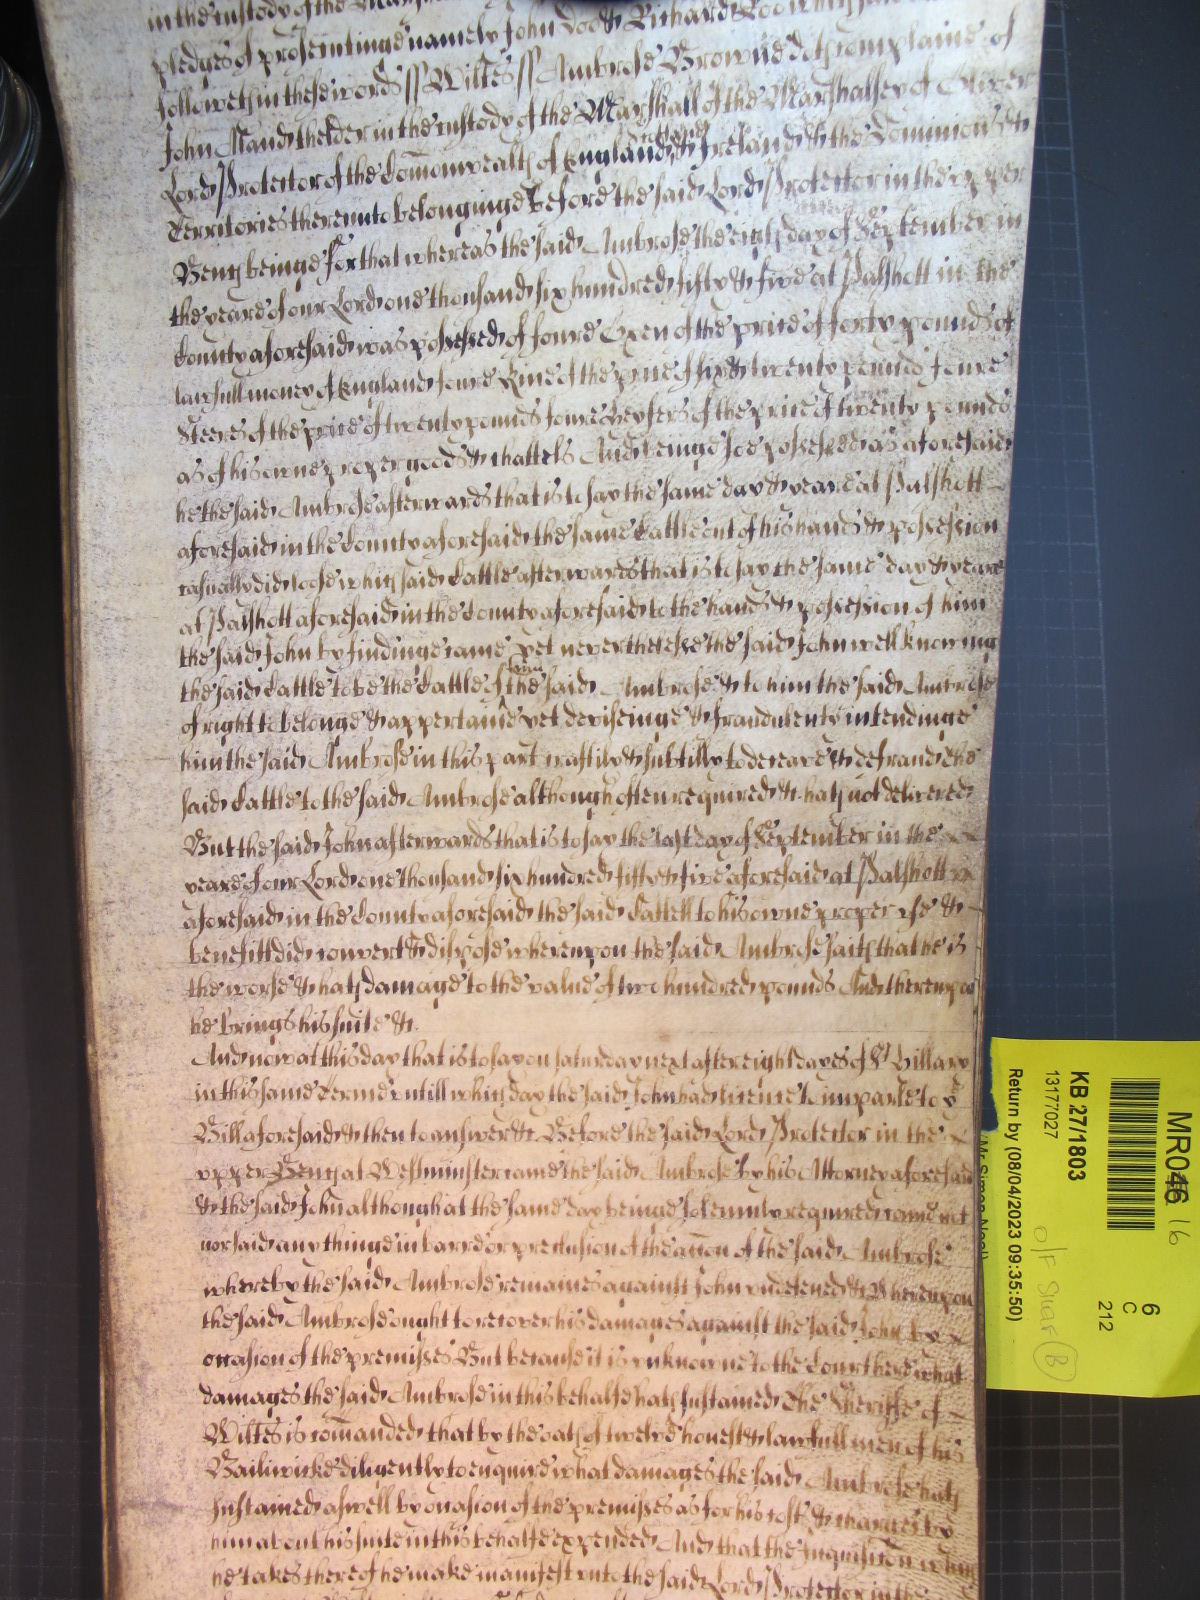 in the custody of the
pledges of prosecutinge namely John Doo & Richard Roo
followeth in these words ss Wiltes ss Ambrose Browne doth complaine of
John Maund thelder in the custody of the Marshall of the Marshalsey of Oliver
Lord Protector of the Comonwealth of England, Scotland & Ireland & the Dominions &
Territories thereunto belonginge before the said Lord Protector in the upper
Bench beinge for that whereas the said Ambrose the eigth day of September in
the yeare of our Lord one thousand six hundred fifty & five at Palshott in the
County aforesaid was possessed of foure Oxen of the price of forty pounds of
lawfull money of England foure Kine of the price of six & twenty pounds foure
Steeres of the price of twenty pounds foure heyfers of the price of twenty pounds
as of his owne proper goods & chattels And beinge soe possessed as aforesaid
he the said Ambrose afterwards that is to say the same day & yeare at Palshott
aforesaid in the County aforesaid the same Cattle out of his hands & possession
casually did loose which said Cattle afterwards that is to say the same day & yeare
at Palshott aforesaid in the County aforesaid to the hands & possession of him
the said John by findinge came yet neverthelesse the said John well knowing
the said Cattle to be the Cattle of him the said Ambrose & to him the said Ambrose
of right to belonge & appertaine yet deviseinge & fraudulently intendinge
him the said Ambrose in this part craftily & subtilly to deceave & defraud the
said Cattle to the said Ambrose although often required & hath not delivered
But the said John afterwards that is to say the last day of September in the
yeare of our Lord one thousand six hundred fifty & five aforesaid at Palshott
aforesaid in the County aforesaid the said Cattell to his owne proper use &
benefitt did convert & dispose whereupon the said Ambrose saith that he is
the worse & hath damage to the value of two hundred pounds And thereupon
he brings his suite &c.
And now at this day that is to say on saturday next after eight dayes of St Hillary
in this same Terme untill which day the said John had licence to imparle to ye
Bill aforesaid & then to answer &c Before the said Lord Protector in the
upper Bench at Westminster came the said Ambrose by his Attorney aforesaid
& the said John although at the same day beinge solemnly required came not
nor said any thinge in barre or preclusion of the accion of the said Ambrose
whereby the said Ambrose remaines against John undefended & Whereupon
the said Ambrose ought to recover his damages against the said John by
occasion of the premisses But because it is unknowne to the Court here what
damages the said Ambrose in this behalfe hath sustained The Sheriffe of
Wiltes is comanded that by the oath of twelve honest & lawfull men of his
Bailiwicke diligently to enquire what damages the said Ambrose hath
sustained aswell by occasion of the premisses as for his costs & charges by
him about his suite in this behalfe expended And that the Inquisicion which
he takes thereof he make manifest unto the said Lord Protector in the
MR046 16
KB 27/1803
13177027
Return by (08/04/2023 09:35:50)
6
C
212
O/F Start B
(Mr Simon Neal)